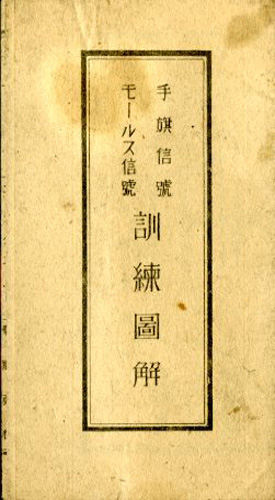 手旗信號
モールス信號
訓練圖解